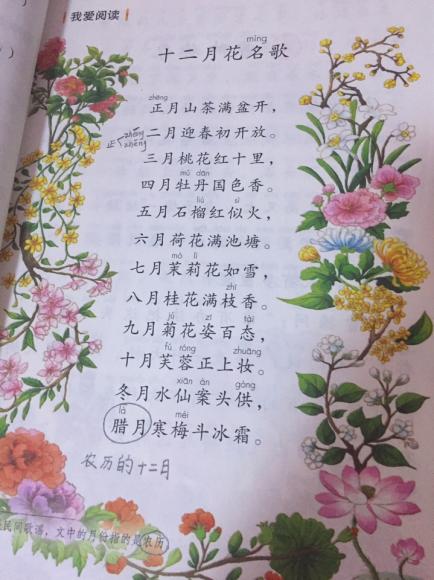 我爱阅读
míng
十二月花名歌
zhēng
正月山茶满盆开，
正 zhēng zhèng
二月迎春初开放。
三月桃花红十里，
mǔ dān
四月牡丹国色香。
liú sì
五月石榴红似火，
六月荷花满池塘。
mò lì
七月茉莉花如雪，
zhī
八月桂花满枝香。
jú zī tài
九月菊花姿百态，
fú róng zhuāng
十月芙蓉正上妆。
xiān àn gòng
冬月水仙案头供，
là méi
腊月寒梅斗冰霜。
农历的十二月
民间歌谣，文中的月份指的是农历